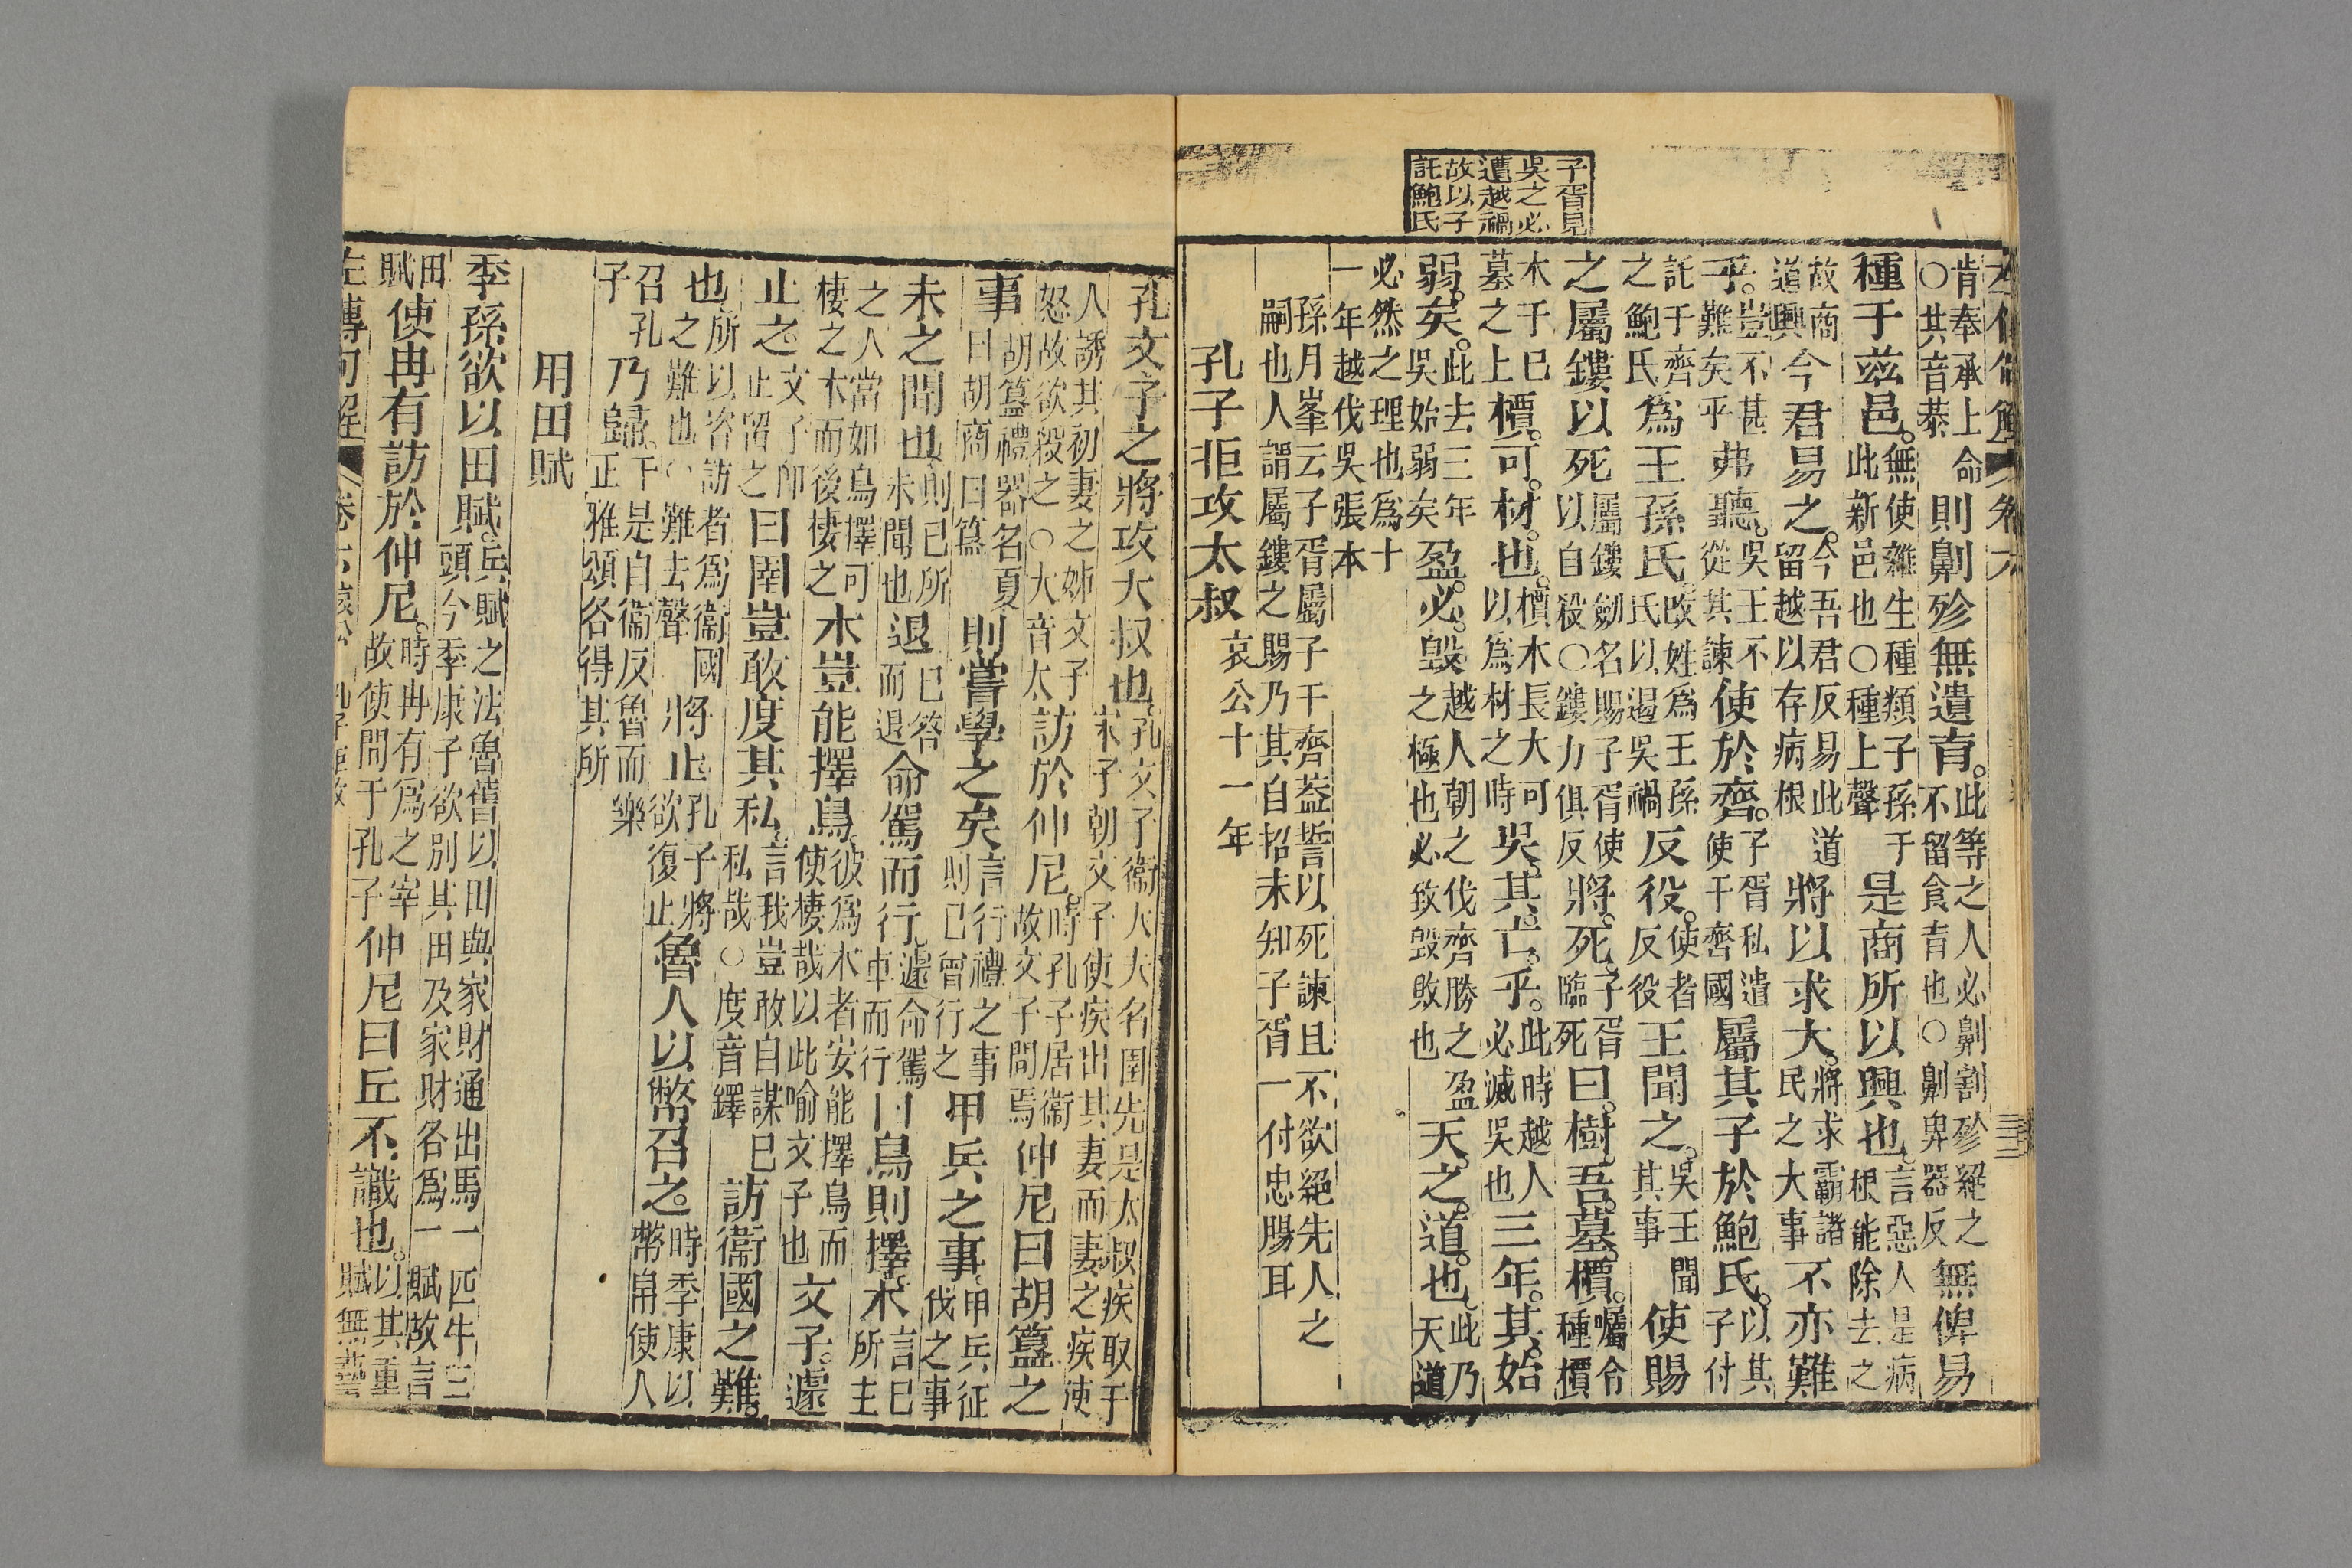 子胥見
吳之必
遭越禍
故以子
託鮑氏
肯奉承上命○其音恭則劓殄無遺育。此等之人必劓割殄絕之不留食育也○劓卑器反無俾易
種于茲邑。無使雜生種類子孫于此新邑也○種上聲是商所以興也。言惡人是病根能除去之
故商道興今君易之。今吾君反易此道留越以存病根將以求大。將求霸諸民之大事不亦難
乎。豈不甚難矣乎弗聽。吳王不從其諫使於齊。子胥私遣使于齊國屬其子於鮑氏。以其子付
託于齊之鮑氏爲王孫氏。改姓爲王孫氏以遏吳禍反役。使者反役王聞之。吳王聞其事使賜
之屬鏤以死屬鏤劒名賜子胥使以自殺○鏤力俱反將死。子胥臨死曰。樹吾墓檟。囑令種檟
木于巳墓之上檟。可材也。檟木長大可以爲材之時吳其亡乎。此時越人必滅吳也三年其始
弱矣。此去三年吳始弱矣盈必毀。越人朝之伐齊勝之盈之極也必致毀敗也天之道也。此乃天道
必然之理也爲十一年越伐吳張本
孫月峯云子胥屬子于齊葢誓以死諫且不欲絕先人之嗣也人謂屬鏤之賜乃其自招未知子胥一付忠腸耳
孔子拒攻太叔 哀公十一年
孔文子之將攻大叔也。孔文子衞大夫名圉先是太叔疾取于宋子朝文子使疾出其妻而妻之疾使
人誘其初妻之娣文子怒故欲殺之○大音太訪於仲尼。時孔子居衞故文子問焉仲尼曰胡簋之
事胡簋禮器名夏曰胡商曰簋則嘗學之矣言行禮之事則已曾行之甲兵之事。甲兵征伐之事
未之聞也則已所未聞也退已答而退命駕而行。遽命駕車而行曰鳥則擇木言已所主
之人當如鳥擇可棲之木而後棲之木豈能擇鳥。彼爲木者安能擇鳥而使棲哉以此喻文子也文子遽
止之。文子卽止畱之曰圉豈敢度其私。言我豈敢自謀已私哉○度音鐸訪衞國之難。
也所以咨訪者爲衞國之難也○難去聲將止孔子將欲復止魯人以幣召之。時季康以幣帛使人
召孔子乃歸。于是自衞反魯而樂正雅頌各得其所
用田賦
季孫欲以田賦。兵賦之法魯舊以田與家財通出馬一匹牛三頭今季康子欲別其田及家財各爲一賦故言
田賦使冉有訪於仲尼。時冉有爲之宰故使問于孔子仲尼曰丘不識也。以其重賦無藝
左傳句解 卷六 哀公